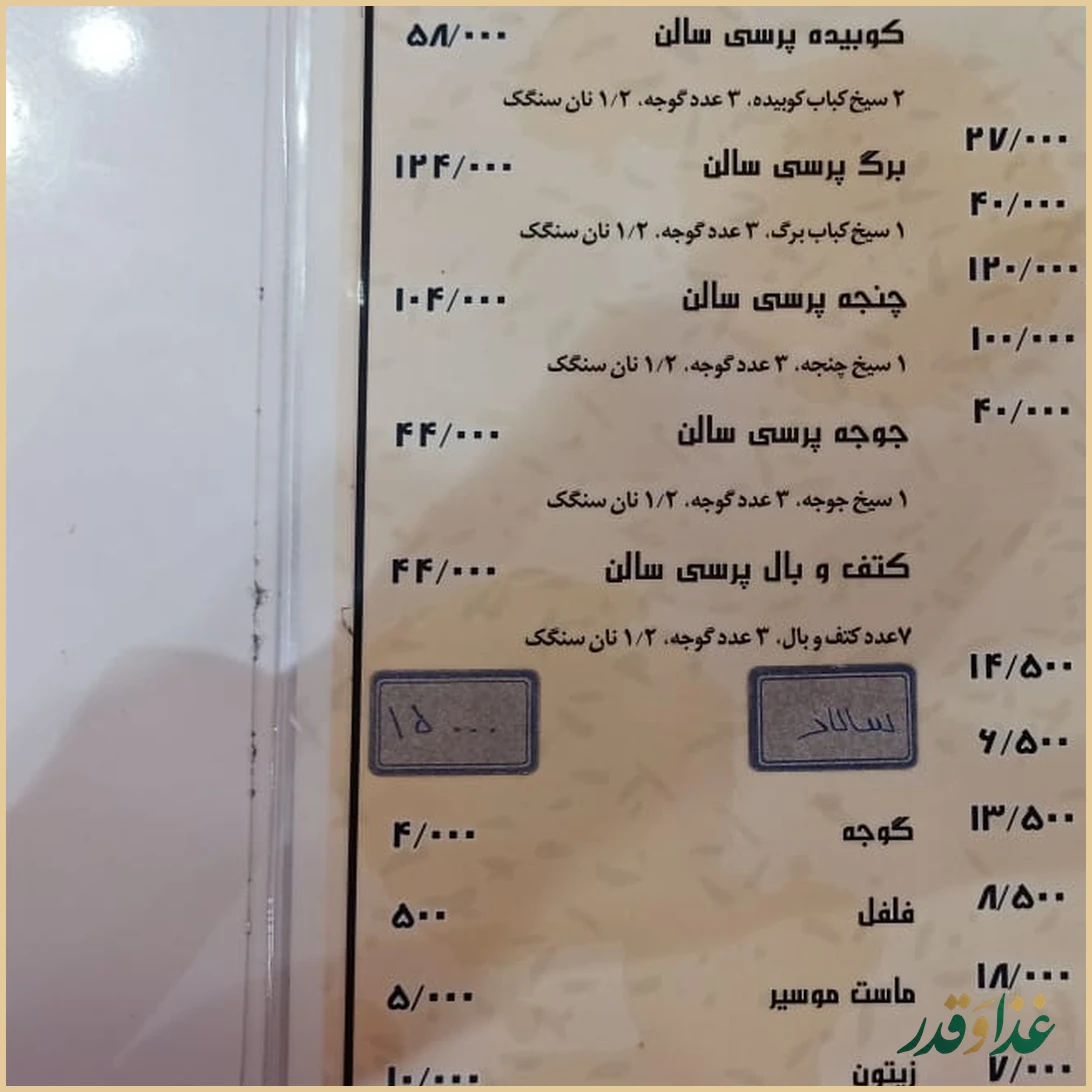 کوبیده پرسی سالن ۵۸/۰۰۰
۲ سیخ کباب کوبیده، ۳ عدد گوجه، ۱/۲ نان سنگک
۲۷/۰۰۰
برگ پرسی سالن ۱۲۴/۰۰۰
۴۰/۰۰۰
۱ سیخ کباب برگ، ۳ عدد گوجه، ۱/۲ نان سنگک
۱۲۰/۰۰۰
چنجه پرسی سالن ۱۰۴/۰۰۰
۱۰۰/۰۰۰
۱ سیخ چنجه، ۳ عدد گوجه، ۱/۲ نان سنگک
۴۰/۰۰۰
جوجه پرسی سالن ۴۴/۰۰۰
۱ سیخ جوجه، ۳ عدد گوجه، ۱/۲ نان سنگک
کتف و بال پرسی سالن ۴۴/۰۰۰
۷عدد کتف و بال، ۳ عدد گوجه، ۱/۲ نان سنگک
۱۴/۵۰۰
سالاد ۱۵۰۰۰
۶/۵۰۰
۱۳/۵۰۰
گوجه ۴/۰۰۰
۸/۵۰۰
فلفل ۵۰۰
۱۸/۰۰۰
ماست موسیر ۵/۰۰۰
غذا و قدر
۷/۰۰۰
زیتون ۱۰/۰۰۰